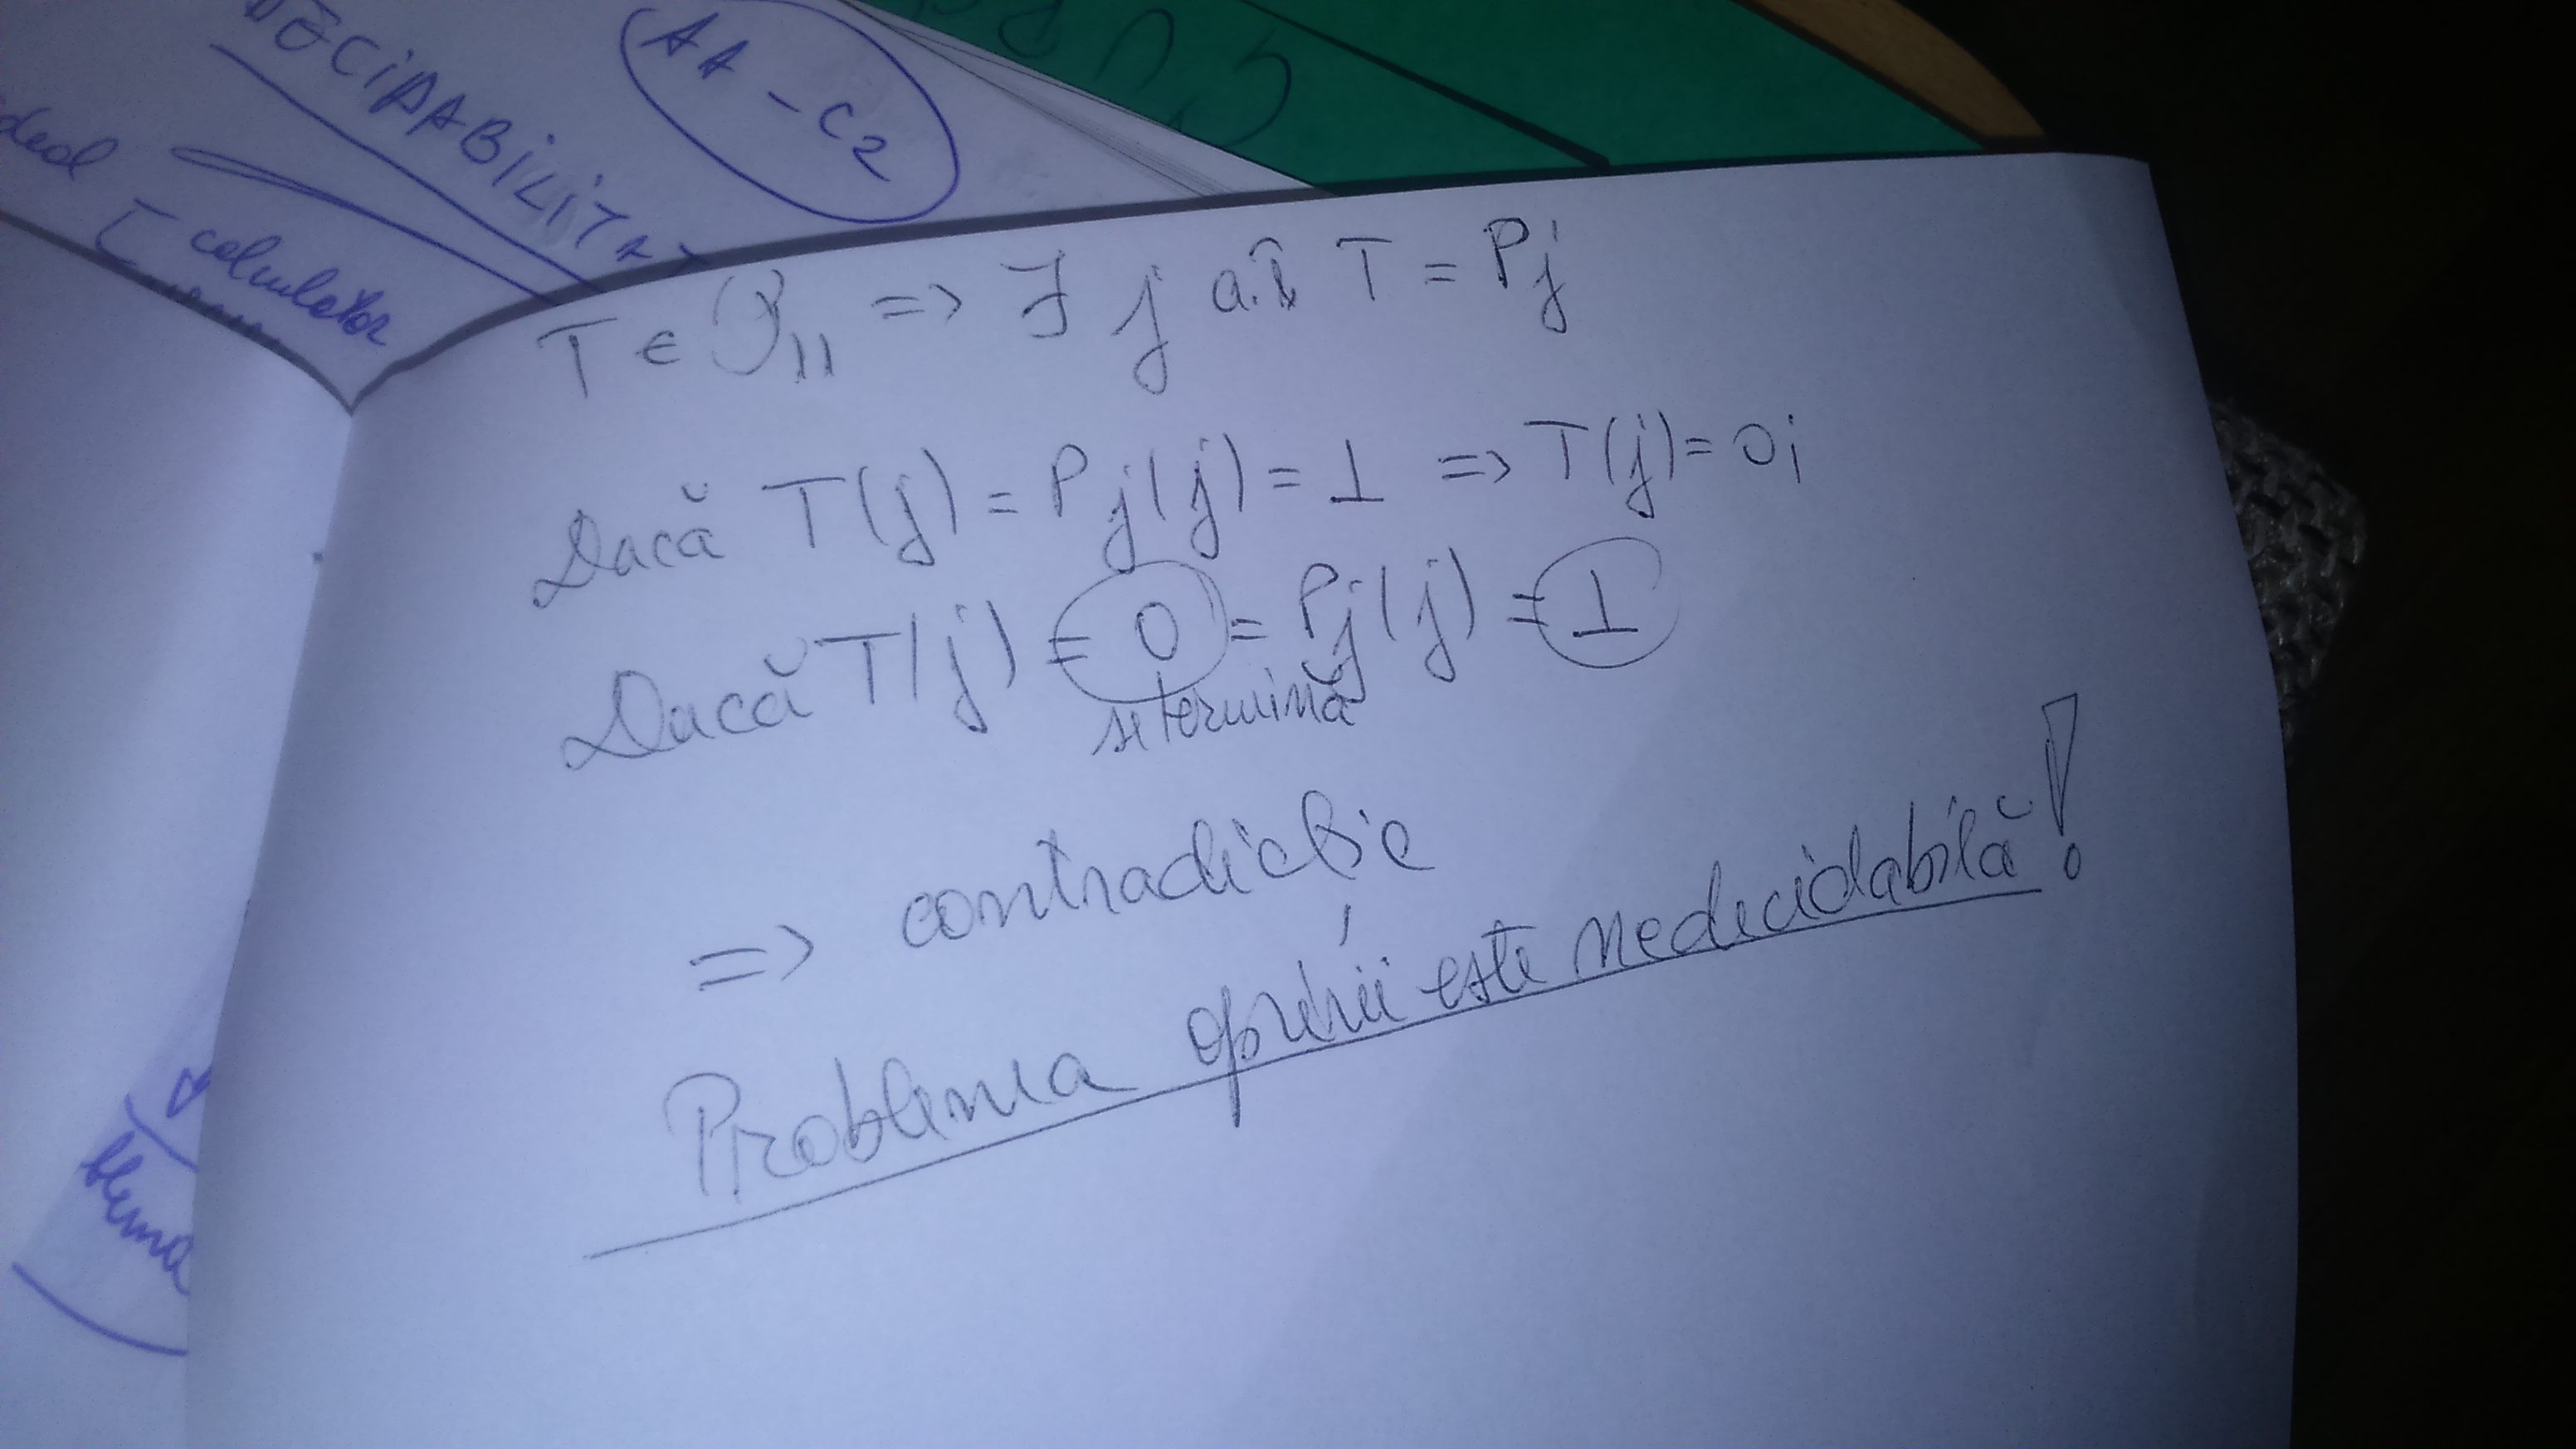 AA - C2
DECIDABILITA
calculator
T ∈ P₁₁ => ∃ j a.î T = Pj
Dacă T(j) = Pj(j) = ⊥ => T(j) = 0;
Dacă T(j) = 0 = Pj(j) = ⊥
se termină
=> contradicție
Problema opririi este nedecidabilă!